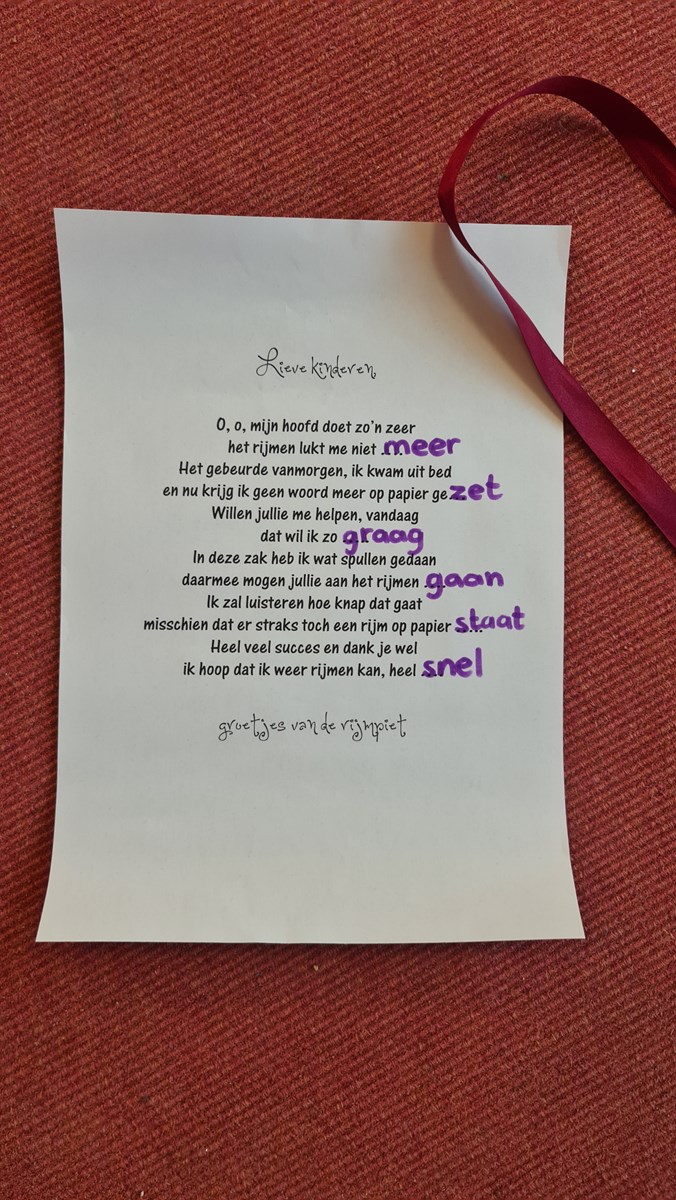 Lieve kinderen,
O, o, mijn hoofd doet zo'n zeer
het rijmen lukt me niet ....meer
Het gebeurde vanmorgen, ik kwam uit bed
en nu krijg ik geen woord meer op papier gezet
Willen jullie me helpen, vandaag
dat wil ik zo graag
In deze zak heb ik wat spullen gedaan
daarmee mogen jullie aan het rijmen ....gaan
Ik zal luisteren hoe knap dat gaat
misschien dat er straks toch een rijm op papier staat
Heel veel succes en dank je wel
ik hoop dat ik weer rijmen kan, heel ....snel
groetjes van de rijmpiet